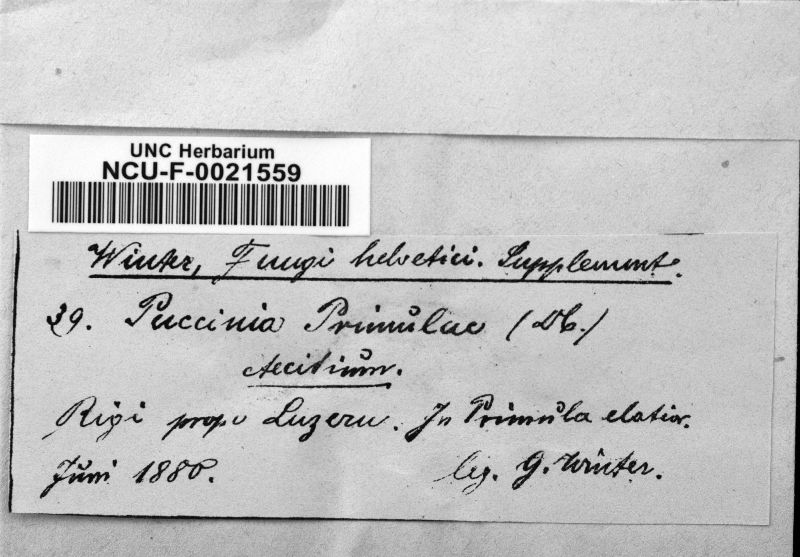 UNC Herbarium
NCU-F-0021559
Winter, Fungi helvetici. Supplement.
39. Puccinia Primulae (Db.)
Aecidium.
Rigi prope Luzern. In Primula elatior.
Juni 1880. leg. G. Winter.